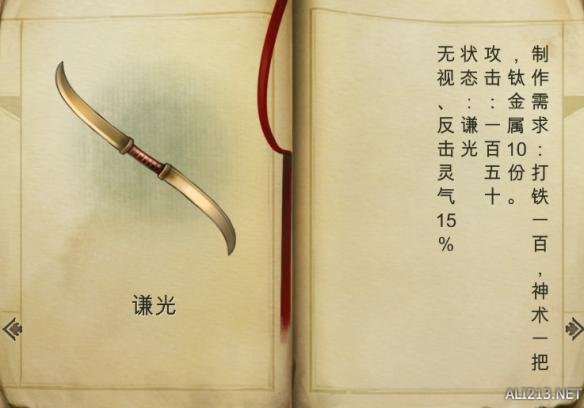 谦光
制作需求：打铁一百，神术一把
，钛金属10份。
攻击：一百五十
状态：谦光
无视、反击灵气15%
ALI213.NET